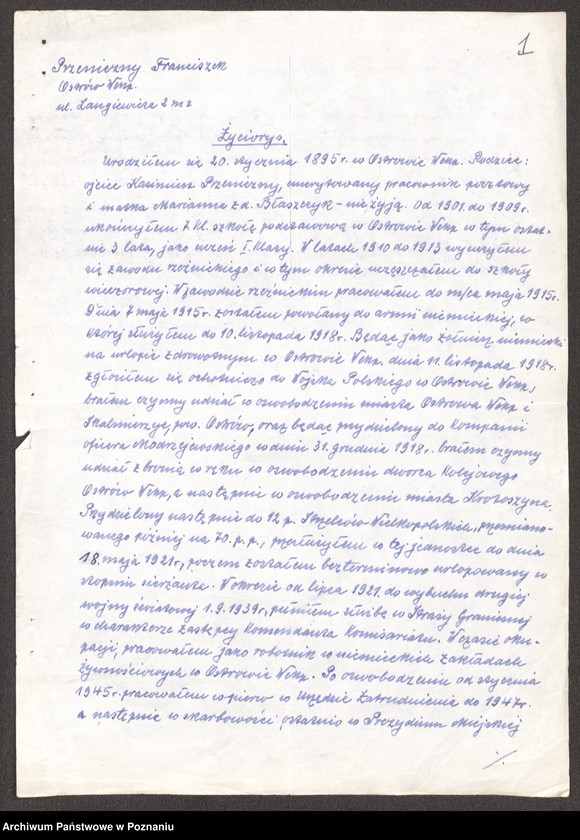 1
Przeniczny Franciszek
Ostrów Wlkp.
ul. Langiewicza 2 m 2
Życiorys.
Urodziłem się 20. stycznia 1895 r. w Ostrowie Wlkp. Rodzice:
ojciec Kazimierz Przeniczny, emerytowany pracownik pocztowy
i matka Marianna z d. Błaszczyk - nie żyją. Od 1901. do 1909 r.
ukończyłem 7. kl. szkołę podstawową w Ostrowie Wlkp. w tym ostat-
nie 3 lata, jako uczeń I. klasy. W latach 1910 do 1913 wyuczyłem
się zawodu rzeźnickiego i w tym okresie uczęszczałem do szkoły
wieczorowej. W zawodzie rzeźnickim pracowałem do m/ca maja 1915 r.
Dnia 7 maja 1915 r. zostałem powołany do armii niemieckiej, w
której służyłem do 10. listopada 1918 r. Będąc jako żołnierz niemiecki
na urlopie zdrowotnym w Ostrowie Wlkp. dnia 11. listopada 1918 r.
zgłosiłem się ochotniczo do Wojska Polskiego w Ostrowie Wlkp.,
brałem czynny udział w oswobodzeniu miasta Ostrowa Wlkp. i
Skalmierzyc, pow. Ostrów, oraz będąc przydzielony do Kompanii
oficera Modrzejewskiego w dniu 31. grudnia 1918 r. brałem czynny
udział z bronią w ręku w oswobodzeniu dworca kolejowego
Ostrów Wlkp., a następnie w oswobodzeniu miasta Krotoszyna.
Przydzielony następnie do 12 p. Strzelców Wielkopolskich, przemiano-
wanego później na 70. p. p., przesłużyłem w tej jednostce do dnia
18. maja 1921 r., poczem zostałem bezterminowo urlopowany w
stopniu sierżanta. W okresie od lipca 1921. do wybuchu drugiej
wojny światowej 1.9.1939 r., pełniłem służbę w Straży Granicznej
w charakterze zastępcy Komendanta Komisariatu. W czasie oku-
pacji, pracowałem jako robotnik w niemieckich zakładach
żywnościowych w Ostrowie Wlkp. Po oswobodzeniu od stycznia
1945 r. pracowałem wpierw w Urzędzie Zatrudnienia do 1947 r.
a następnie w skarbowości ostatnio w Prezydium Miejskiej
./.
Archiwum Państwowe w Poznaniu